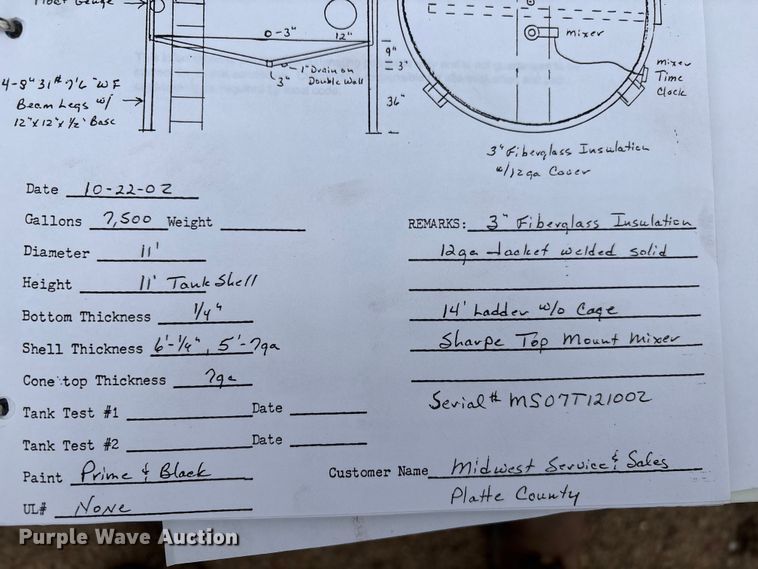 Float Gauge
0-3"
12"
9"
3"
1" Drain on
Double Wall
3"
36"
mixer
mixer
Time
Clock
4-8" 31# 7'6" WF
Beam Legs w/
12"x12"x1/2" Base
3" Fiberglass Insulation
w/12ga Cover
Date 10-22-02
Gallons 7,500 Weight
Diameter 11'
Height 11' Tank Shell
Bottom Thickness 1/4"
Shell Thickness 6'-1/4", 5'-7ga
Cone top Thickness 7ga
Tank Test #1 Date
Tank Test #2 Date
Paint Prime & Black
UL# None
REMARKS: 3" Fiberglass Insulation
12ga Jacket welded solid
14' Ladder w/o Cage
Sharpe Top Mount Mixer
Serial# MS07T121002
Customer Name Midwest Service & Sales
Platte County
Purple Wave Auction